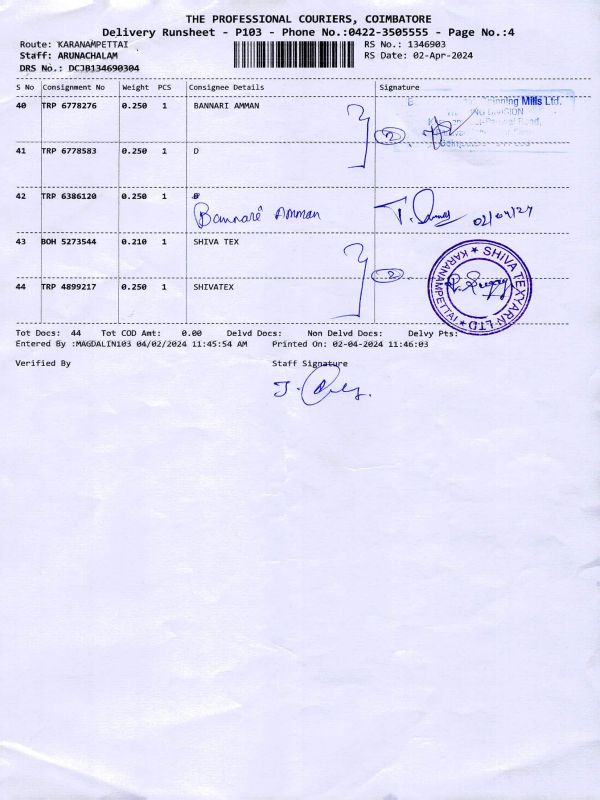 THE PROFESSIONAL COURIERS, COIMBATORE
Delivery Runsheet - P103 - Phone No.:0422-3505555 - Page No.:4
Route: KARANAMPETTAI RS No.: 1346903
Staff: ARUNACHALAM RS Date: 02-Apr-2024
DRS No.: DCJB134690304
S No Consignment No Weight PCS Consignee Details Signature
40 TRP 6778276 0.250 1 BANNARI AMMAN
Spinning Mills Ltd.
DIVISION
2
41 TRP 6778583 0.250 1 D
42 TRP 6386120 0.250 1
Bannari Amman 02/04/24
43 BOH 5273544 0.210 1 SHIVA TEX
2
SHIVA TEXYARN LTD ★ KARANAMPETTAI ★
44 TRP 4899217 0.250 1 SHIVATEX
Tot Docs: 44 Tot COD Amt: 0.00 Delvd Docs: Non Delvd Docs: Delvy Pts:
Entered By :MAGDALIN103 04/02/2024 11:45:54 AM Printed On: 02-04-2024 11:46:03
Verified By Staff Signature